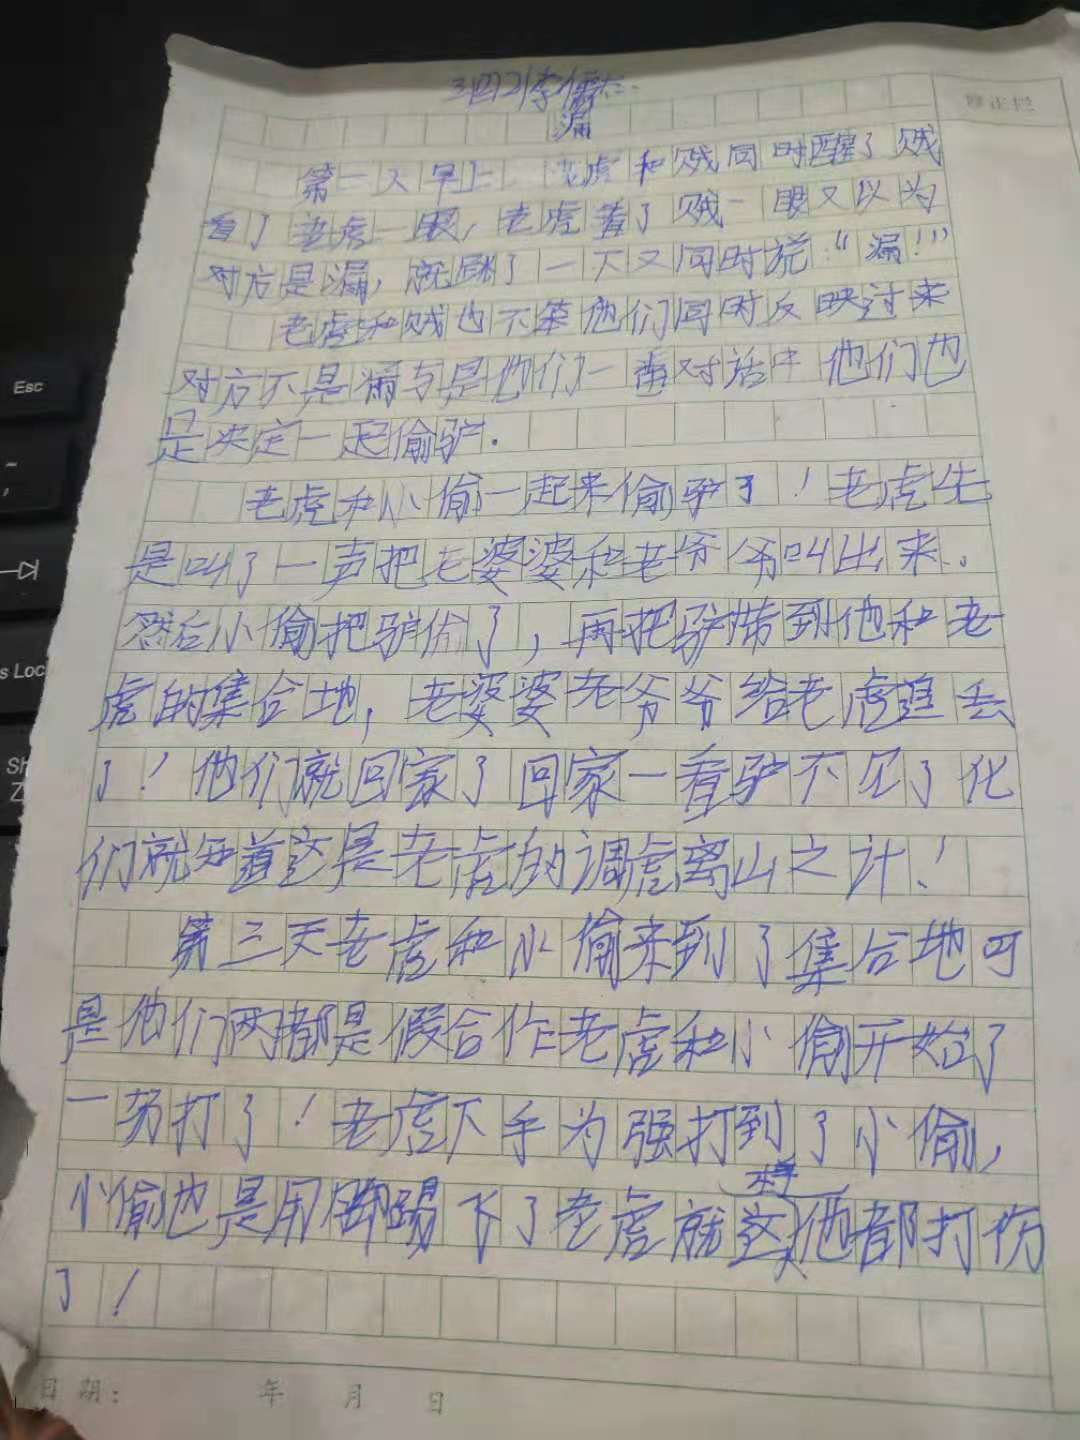 三(四)李
漏
修正栏
第二天早上,老虎和贼同时醒了贼
看了老虎一眼,老虎看了贼一眼又以为
对方是漏,就踩了一下又同时说:“漏!”
老虎和贼也不笨他们同时反映过来
对方不是漏与是他们一番对话中他们也
是决定一起偷驴.
老虎和小偷一起来偷驴了!老虎先
是叫了一声把老婆婆和老爷爷叫出来.
然后小偷把驴偷了,再把驴带到他和老
虎的集合地,老婆婆老爷爷给老虎追丢
了!他们就回家了回家一看驴不见了他
们就知道这是老虎的调虎离山之计!
第三天老虎和小偷来到了集合地可
是他们两都是假合作老虎和小偷开始了
一场打了!老虎下手为强打到了小偷,
小偷也是用脚踢下了老虎就这样他都打伤
了!
日期: 年 月 日
Esc
s Loc
Sh